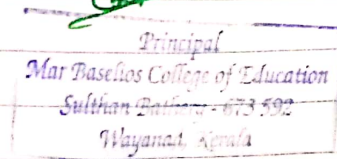 Principal
Mar Baselios College of Education
Sulthan Bathery - 673 592
Wayanad, Kerala